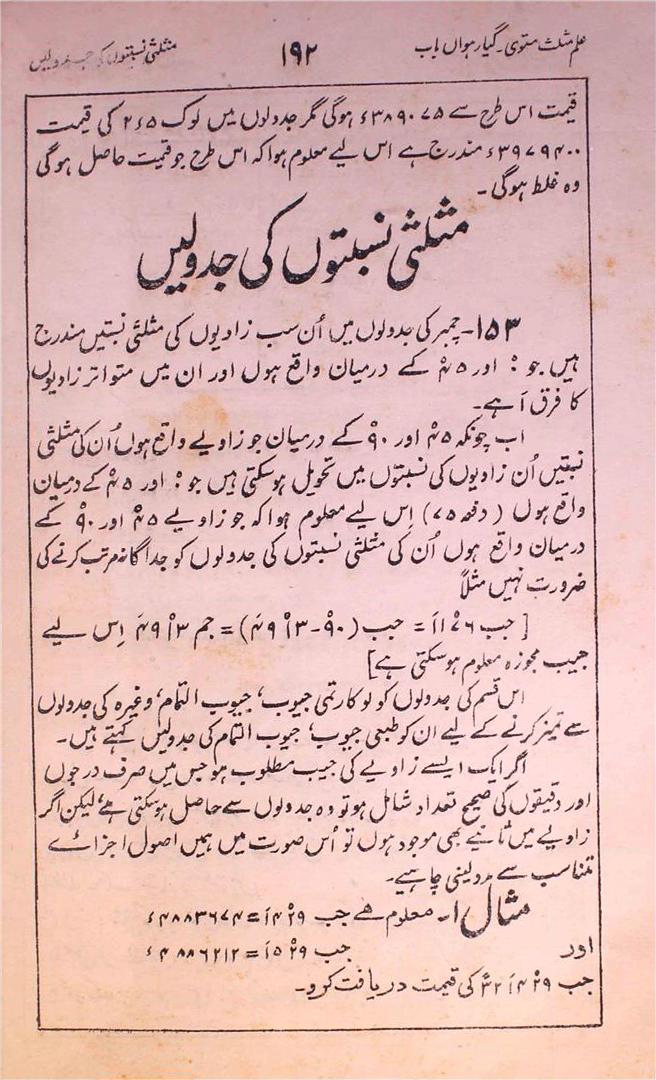 علم مثلث مستوی۔ گیارہواں باب ۱۹۲ مثلثی نسبتوں کی جدولیں
قیمت اس طرح سے ۳۸۹۰۷۵ء ہوگی مگر جدولوں میں لوک ۲۶۵ کی قیمت
۳۹۷۹۴۰۰ء مندرج ہے اس لیے معلوم ہوا کہ اس طرح جو قیمت حاصل ہوگی
وہ غلط ہوگی۔
مثلثی نسبتوں کی جدولیں
۱۵۳۔ چمبر کی جدولوں میں اُن سب زاویوں کی مثلثی نسبتیں مندرج
ہیں جو ۰° اور ۴۵° کے درمیان واقع ہوں اور ان میں متواتر زاویوں
کا فرق ۱َ ہے۔
اب چونکہ ۴۵° اور ۹۰° کے درمیان جو زاویے واقع ہوں اُن کی مثلثی
نسبتیں اُن زاویوں کی نسبتوں میں تحویل ہوسکتی ہیں جو ۰° اور ۴۵° کے درمیان
واقع ہوں (دفعہ ۷۵) اِس لیے معلوم ہوا کہ جو زاویے ۴۵° اور ۹۰° کے
درمیان واقع ہوں اُن کی مثلثی نسبتوں کی جدولوں کو جداگانہ مرتب کرنے کی
ضرورت نہیں مثلاً
[جب ۷۶° ۱۱َ = جب (۹۰° - ۱۳° ۴۹َ) = جم ۱۳° ۴۹َ اِس لیے
جیب مجوزہ معلوم ہوسکتی ہے]
اس قسم کی جدولوں کو لوکارتمی جیوب، جیوب التمام، وغیرہ کی جدولوں
سے تمیز کرنے کے لیے ان کو طبعی جیوب، جیوب التمام کی جدولیں کہتے ہیں۔
اگر ایک ایسے زاویے کی جیب مطلوب ہو جس میں صرف درجوں
اور دقیقوں کی صحیح تعداد شامل ہو تو وہ جدولوں سے حاصل ہوسکتی ہے، لیکن اگر
زاویے میں ثانیے بھی موجود ہوں تو اُس صورت میں ہمیں اصول اجزائے
متناسب سے مدد لینی چاہیے۔
مثال ۱۔ معلوم ہے جب ۲۹° ۱۴َ = ۴۸۸۳۶۷۴ء
اور جب ۲۹° ۱۵َ = ۴۸۸۶۲۱۲ء
جب ۲۹° ۱۴َ ۳۲ً کی قیمت دریافت کرو۔